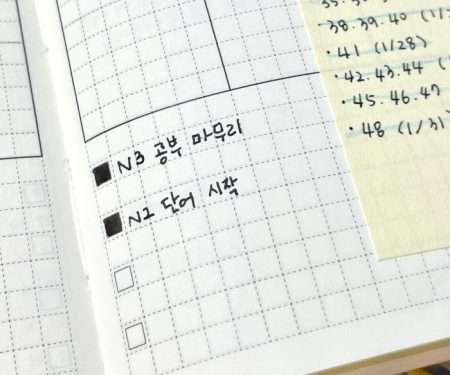 ·38.39.40 (1/
·41 (1/28)
·42.43.44 (
·45.46.47
·48 (1/31)
N3 공부 마무리
N2 단어 시작